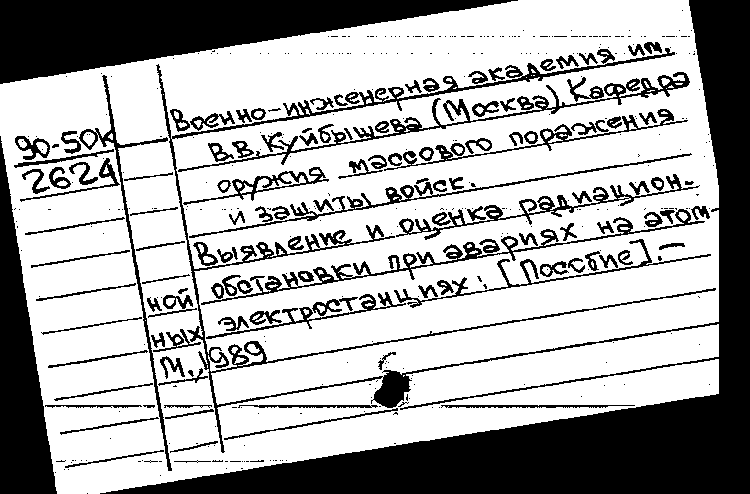 90-50К
2624
Военно-инженерная академия им.
В.В. Куйбышева (Москва). Кафедра
оружия массового поражения
и защиты войск.
Выявление и оценка радиацион-
ной обстановки при авариях на атом-
ных электростанциях: [Пособие].-
М., 1989